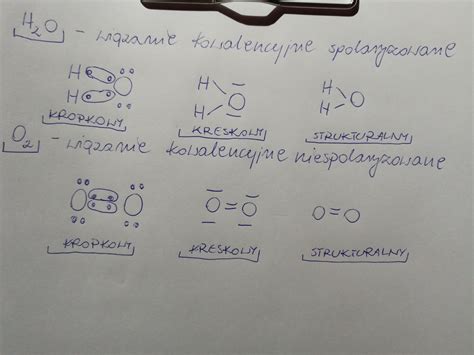 H₂O - wiązanie kowalencyjne spolaryzowane
H H O
H H O
H H O
KROPKOWY KRESKOWY STRUKTURALNY
O₂ - wiązanie kowalencyjne niespolaryzowane
O O
O=O
O=O
KROPKOWY KRESKOWY STRUKTURALNY